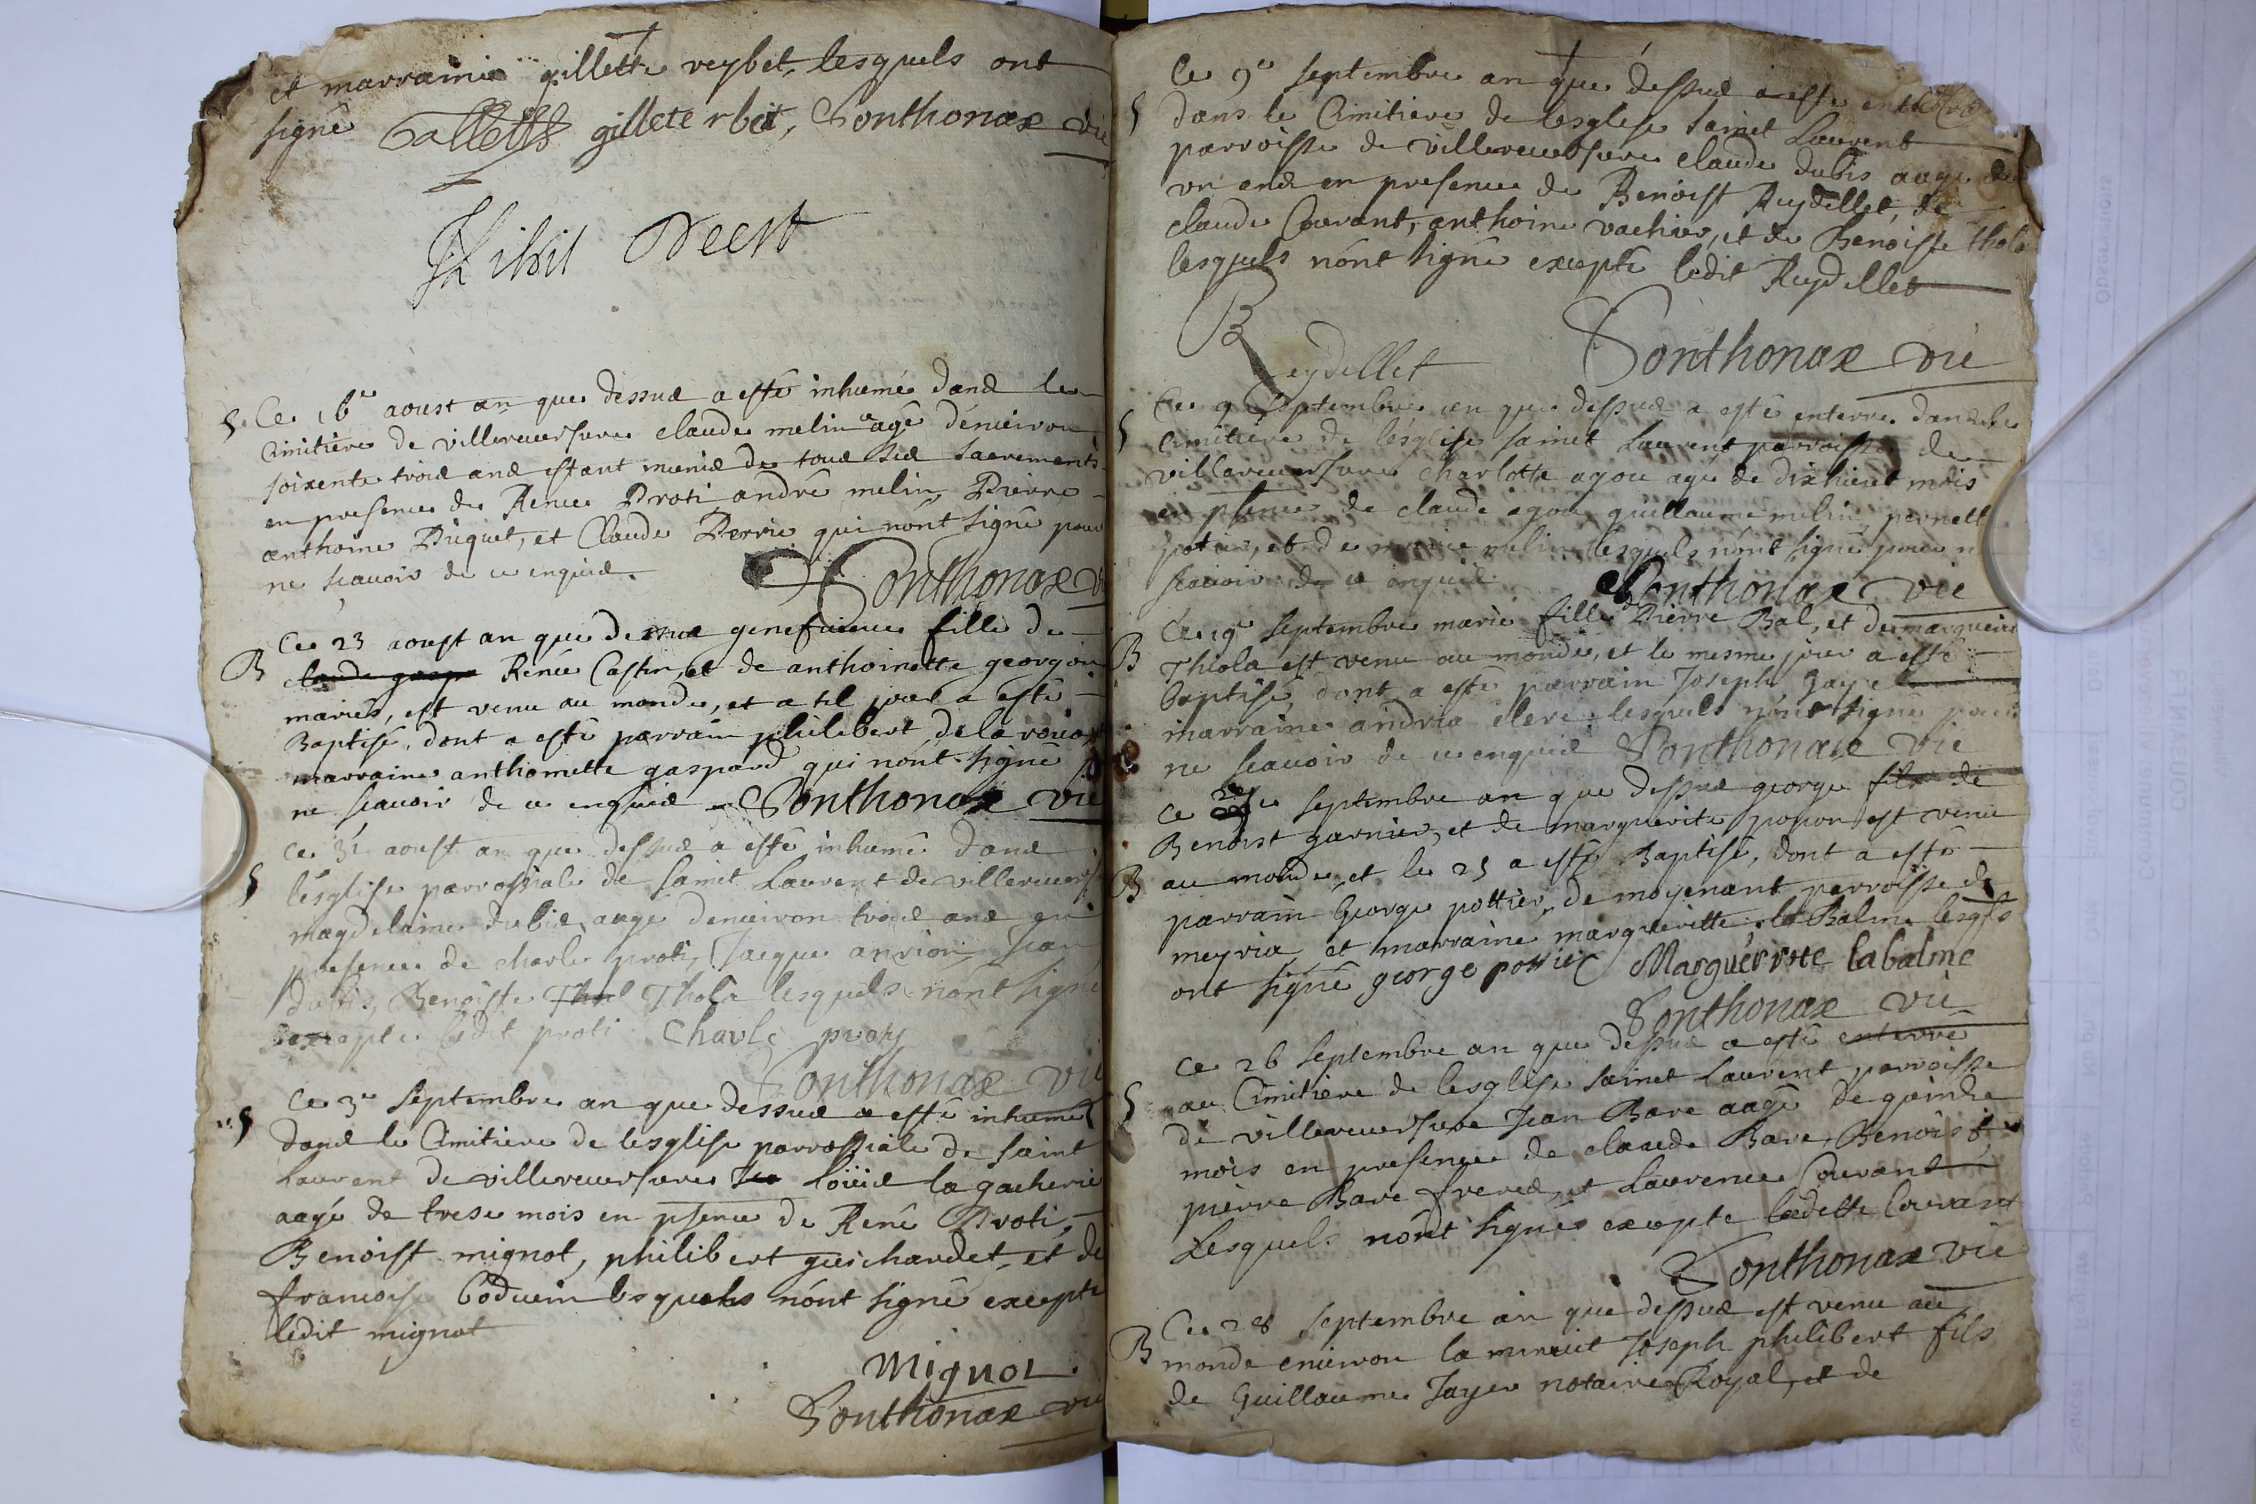 et marraine gillette reybet, lesquels ont
signé gillete rbet, Sonthonax vic
Nihil Deest
S Ce 16e aoust an que dessus a esté inhumé dans le
Cimitiere de villereuersure claude melin agé d'enuiron
soixente trois ans estant munis de tous ses sacrements
en presence de Renee Proti andré melin, Pierre
anthoine Piquet, et Claude Perrie qui n'ont signé pour
ne scauoir de ce enquis. Sonthonax v
Ce 23 aoust an que dessus genefuieue fille de
B Renée Castin, et de anthoinette georgon
mariés, est venu au monde, et a tel jour a esté
Baptisé, dont a esté parrain philibert de la
marraine anthoinette gaspard qui n'ont signé
ne scauoir de ce enquis Sonthonax vic
Ce 31 aoust an que dessus a esté inhumé dans
S l'esglise parrossiale de sainct Laurent de villereuers
magdelaine dubis, aagé denuiron trois ans en
presence de charle proti, Jacque anrion, jean
dubis, Benoiste Thola lesquels n'ont signé
excepte ledit proti Charle proty
Sonthonax vic
Ce 3e septembre an que dessus a esté inhumé
S dans le Cimitiere de lesglise parrossiale de saint
Laurent de villereuersure Loüis la gacherie
aagé de trese mois en psence de René Proti,
Benoist mignot, philibert guichardet, et de
francoise Coduein lesquels n'ont signé excepté
ledit mignot
Mignot
Sonthonax vic
Ce 9e septembre an que dessus a esté
S dans le Cimitiere de lesglise sainct Laurent
parroisse de villereuersure claude dubis aage de
un ans en presence de Benoist Reydellet, de
claude Couvant, anthoine vachier, et de Benoiste thola
lesquels n'ont signé excepté ledit Reydellet
B Reydellet Sonthonax vic
Ce 9e septembre an que dessus a esté enterre dans le
S cimitiere de l'esglise sainct Laurent parroisse de
villareuersure charlotte agou agé de dixhuict mois
en psence de claude agou guillaume melin, pernett
et de melin lesquels n'ont signé pour n
scauoir de ce enquis Sonthonax vic
Ce 19e septembre marie fille de Pierre Bal, et de marguerit
B Thiola est venu au monde, et le mesme jour a esté
baptisé, dont a esté parrain Joseph Jayr
marraine andrea clere lesquels n'ont signé pour
ne scauoir de ce enquis Sonthonax vic
Ce septembre an que dessus george fils de
Benoist garnier, et de marguerite popon est venu
B au monde, et le 25 a esté Baptisé, dont a esté
parrain George pottier, de moyenant parroisse de
meyria, et marraine marguerite la Balme lesqls
ont signé george pottier Marguerite labalme
Sonthonax vic
Ce 26 septembre an que dessus a esté enterré
S au Cimitiere de lesglise sainct Laurent parroisse
de villereuersure Jean Bave aagé de quinze
mois en presence de claude Bave, Benoist
pierre Bave freres, et Laurence Couvant
Lesquels n'ont signés excepte ladette Couvant
Sonthonax vic
Ce 28 septembre an que dessus est venu au
B monde enuiron la minuit Joseph philibert fils
de Guillaume Jayer notaire Royal, et de